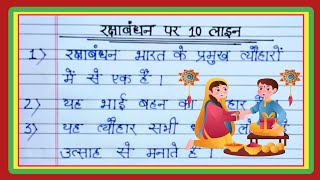 रक्षाबंधन पर 10 लाइन
1) रक्षाबंधन भारत के प्रमुख त्यौहारों
में से एक हैं ।
2) यह भाई बहन का
3) यह त्यौहार सभी
उत्साह से मनाते हैं ।